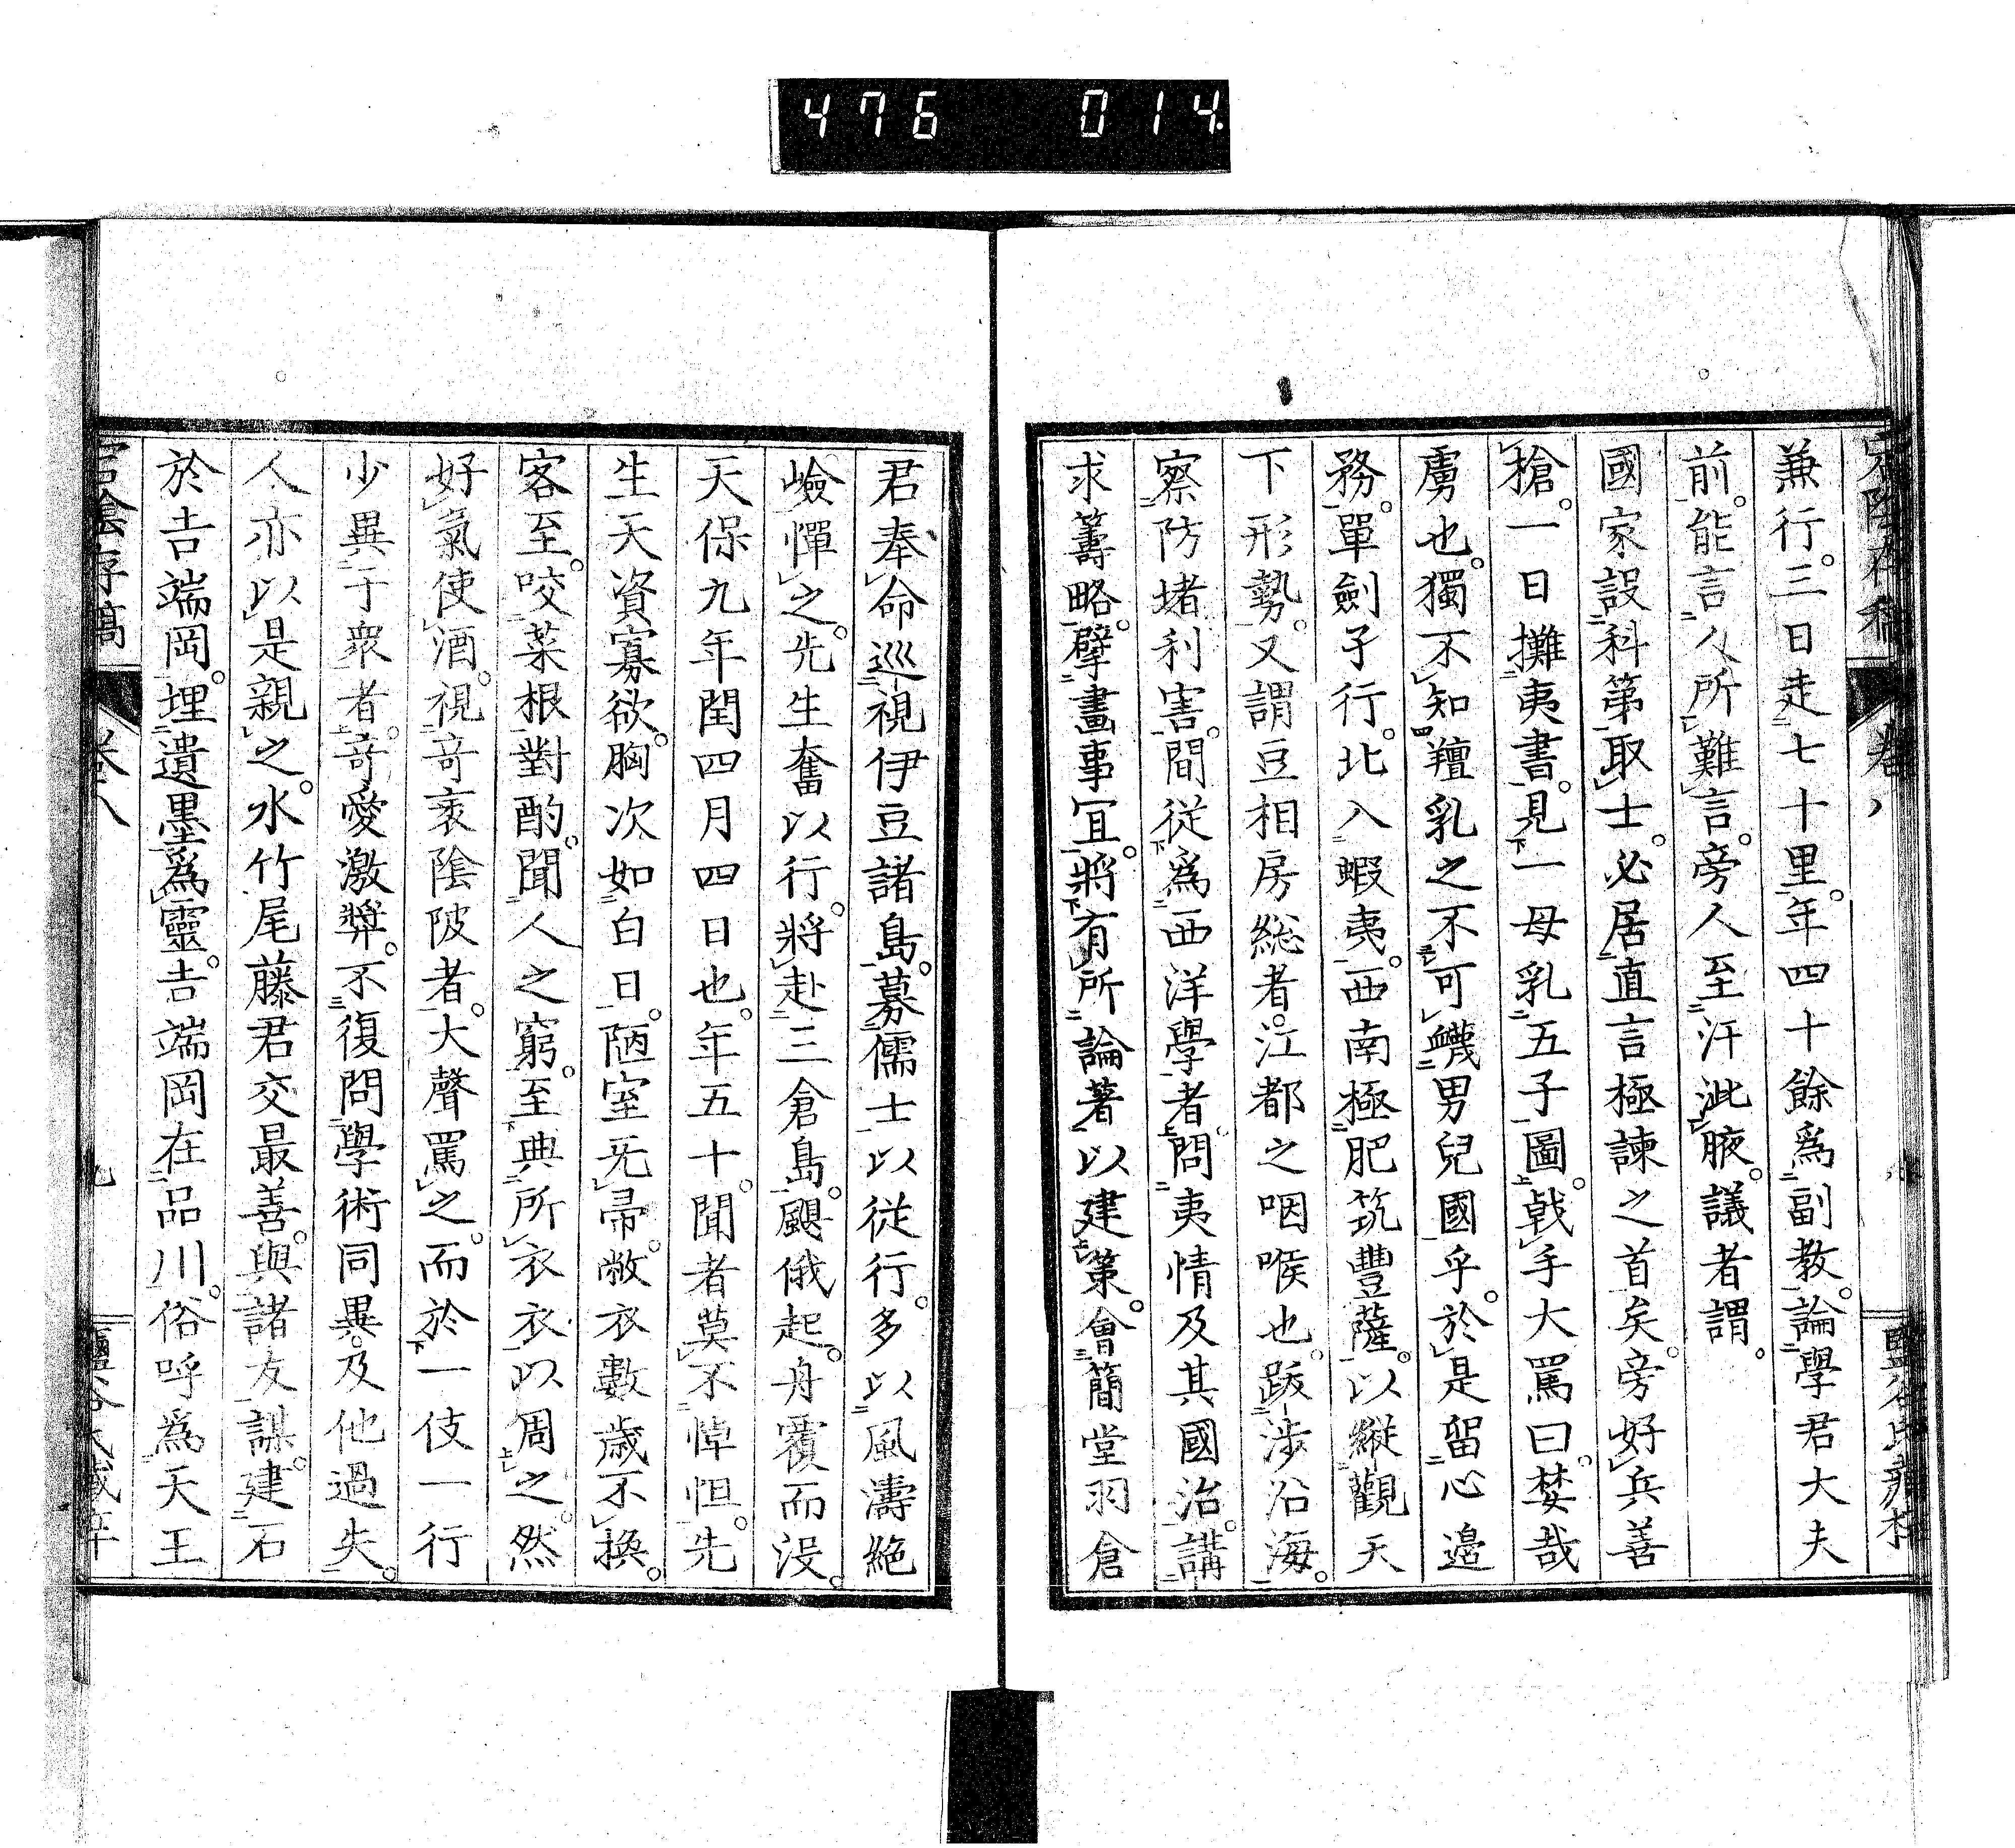 476 014
宕陰存稿 卷八
兼行。三日走七十里。年四十餘爲副教。論學君大夫
前。能言人所難言。旁人至汗泚腋。議者謂。
國家設科第取士。必居直言極諫之首矣。旁好兵善
槍。一日攤夷書。見一母乳五子圖。戟手大罵曰。婪哉
虜也。獨不知羶乳之不可衊男兒國乎。於是留心邊
務。單劍子行。北入蝦夷。西南極肥筑豐薩。以縱觀天
下形勢。又謂豆相房総者。江都之咽喉也。跋渉沿海。
察防堵利害。間從爲西洋學者問夷情及其國治。講
求籌略。擘畫事冝。將有所論著以建策。會簡堂羽倉
君奉命巡視伊豆諸島。募儒士以從行。多以風濤絶
嶮憚之。先生奮以行。將赴三倉島。颶俄起。舟覆而没。
天保九年閏四月四日也。年五十。聞者莫不悼怛。先
生天資寡欲。胸次如白日。陋室旡帚。敝衣數歳不換。
客至。咬菜根對酌。聞人之窮。至典所衣衣以周之。然
好氣使酒。視竒衺陰陂者。大聲罵之。而於一伎一行
少異于衆者。竒愛激奬。不復問學術同異。及他過失。
人亦以是親之。水竹尾藤君交最善。與諸友謀。建石
於吉端岡。埋遺墨爲靈。吉端岡在品川。俗呼爲天王
宕陰存稿 卷八 九